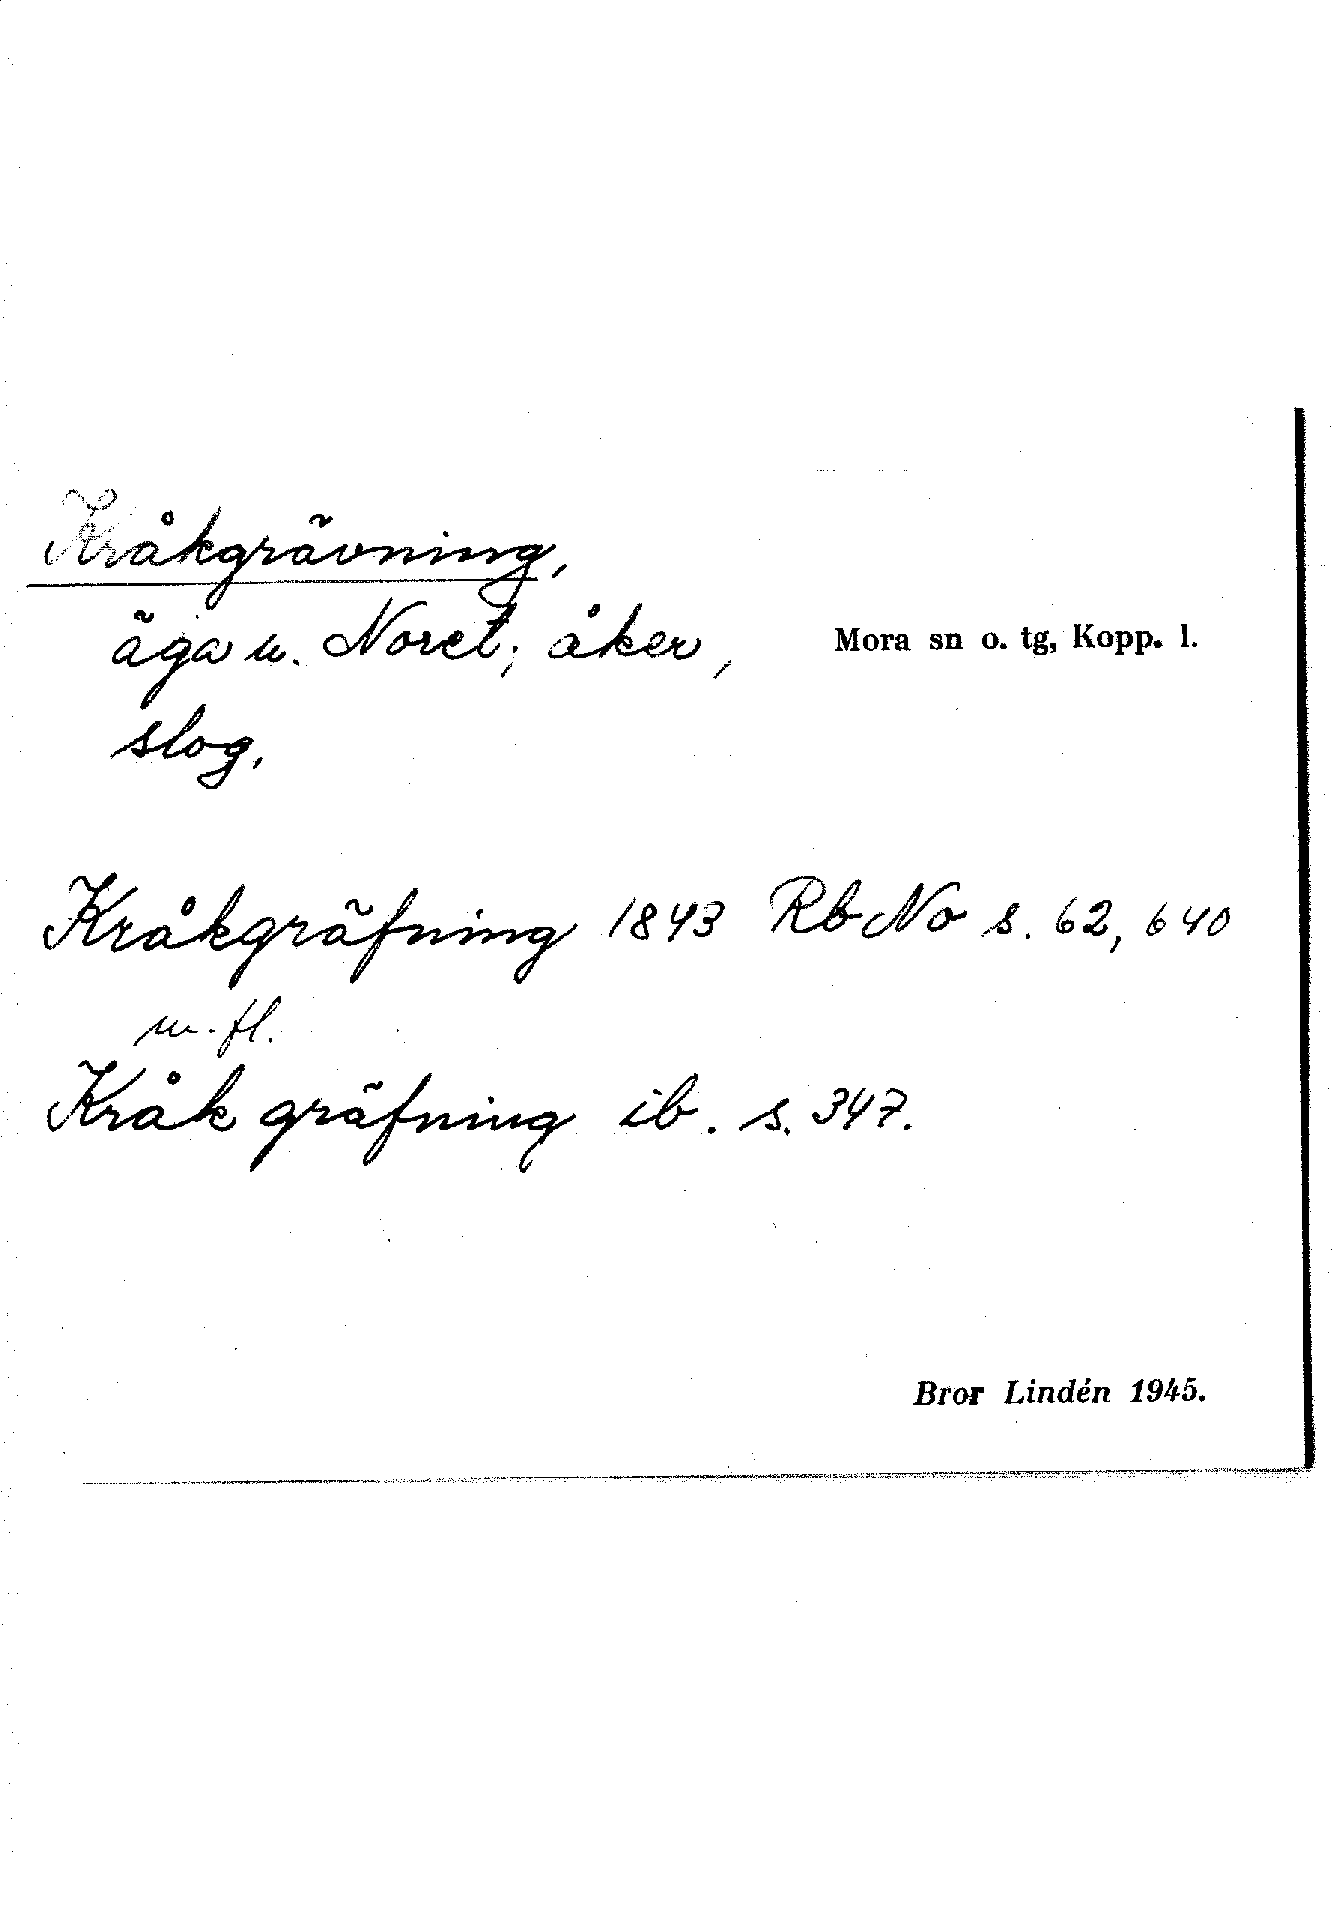 Kråkgrävning,
äga u. Noret; åker,
Mora sn o. tg, Kopp. l.
slog.
Kråkgräfning 1843 Rb No s. 62, 640
m. fl.
Kråk gräfning ib. s. 347.
Bror Lindén 1945.